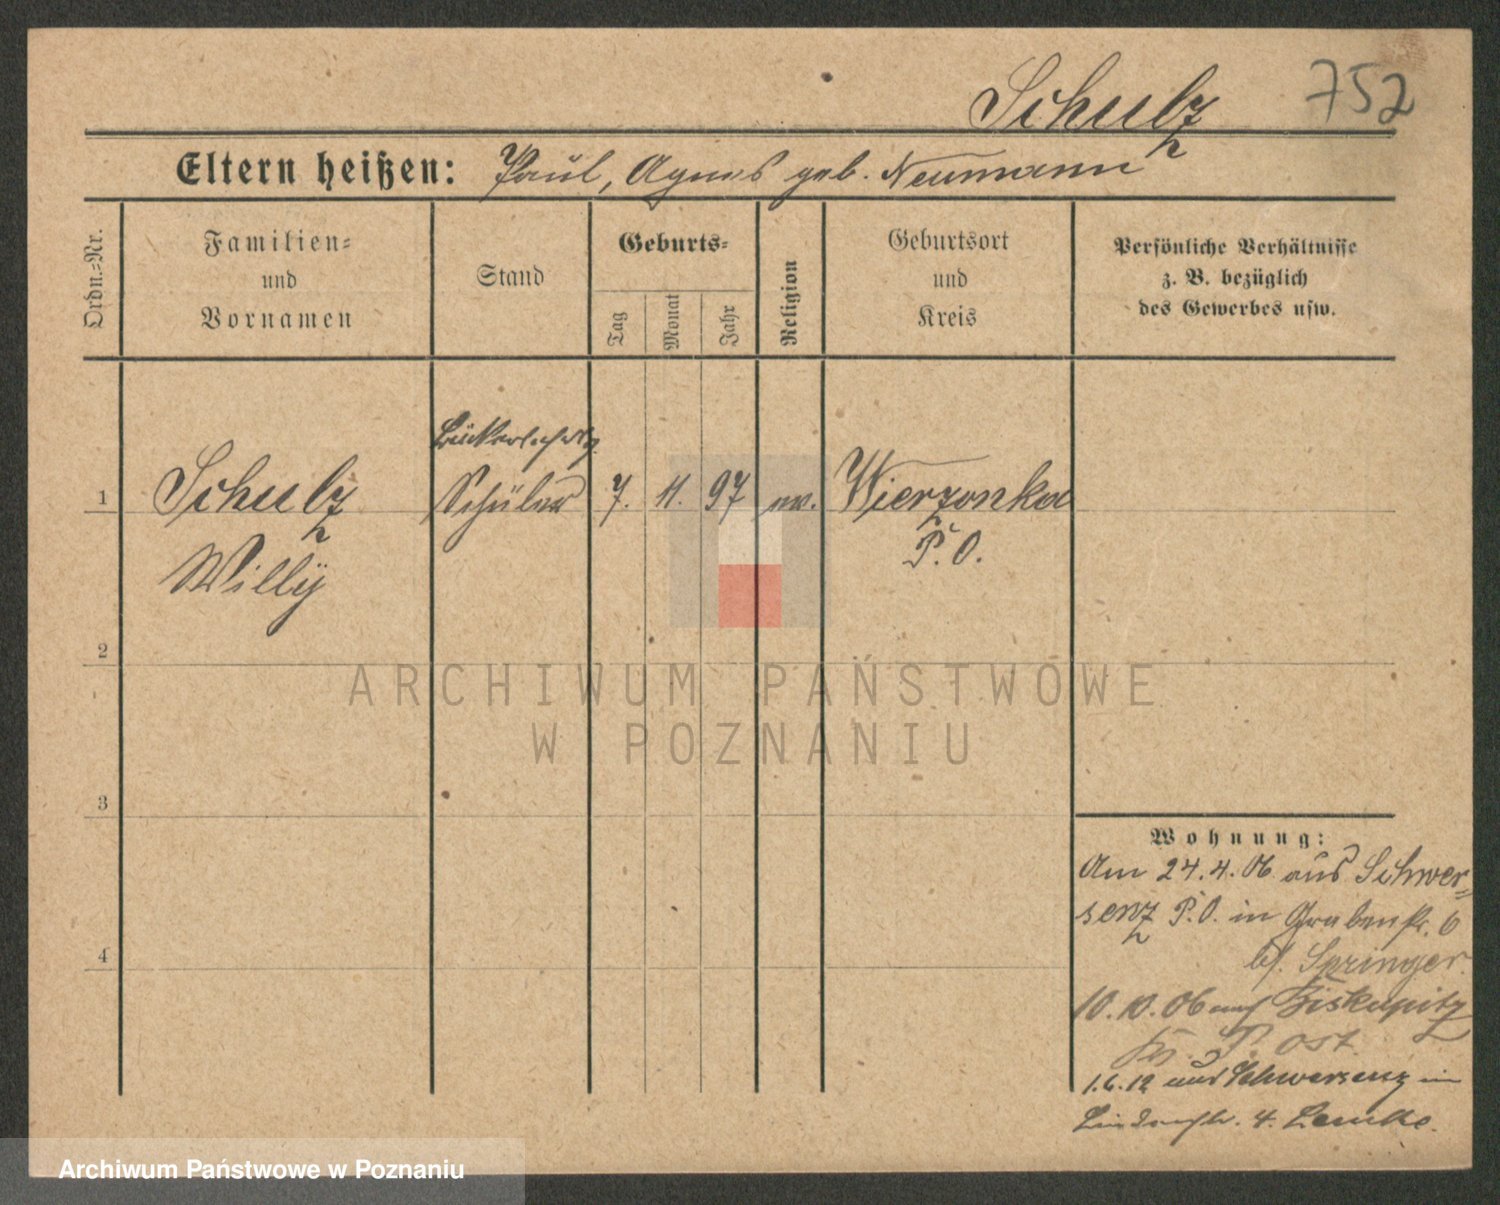 Schulz
752
Eltern heißen: Paul, Agnes geb. Neumann
Ordn.-Nr.
Familien-
und
Vornamen
Stand
Geburts-
Tag
Monat
Jahr
Religion
Geburtsort
und
Kreis
Persönliche Verhältnisse
z. B. bezüglich
des Gewerbes usw.
1 Schulz Schüler 7. 11. 97 ev. Wierzonka
Willÿ P. O.
2
ARCHIWUM PAŃSTWOWE
W POZNANIU
3
4
Wohnung:
Am 24.4.06 aus Schwer-
senz P.O. in Grabenstr. 6
b/. Springer.
10.10.06 auf Biskupitz
Kr. P. Ost.
1.6.12 aus Schwersenz in
Lindenstr. 4. Lemke.
Archiwum Państwowe w Poznaniu